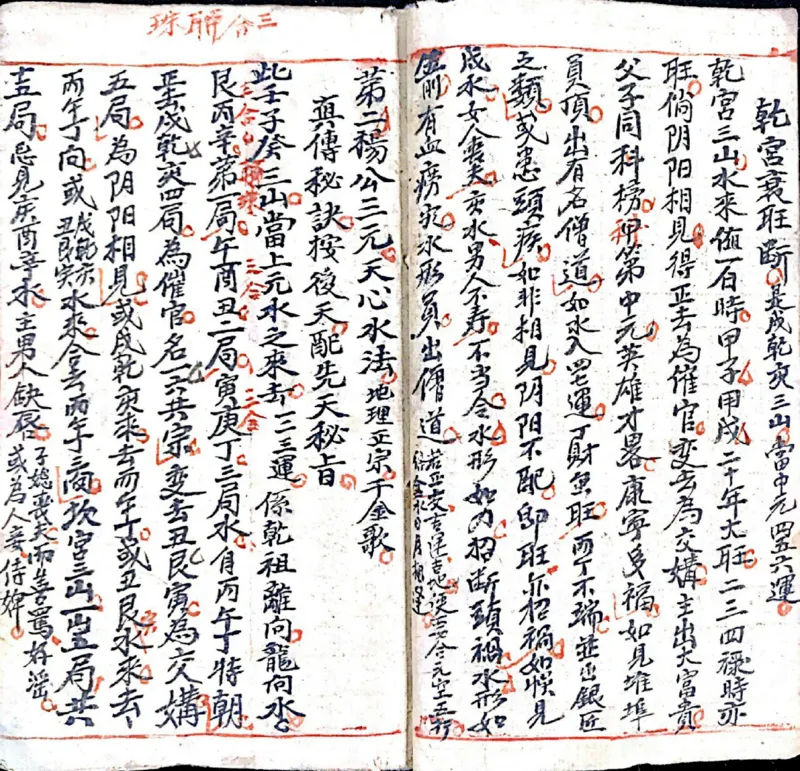 乾宮衰旺断 是戌乾亥三山當中元四五六運
乾宮三山水来值一百時甲子甲戌二十年大旺二三四禄時亦
旺倘阴阳相見得正去為催官变去為交媾主出大富貴
父子同科榜神第中元英雄才畧康寧多福如見堆埠
員頂出有名僧道如水入四七運丁財無旺丙丁不端並出銀匠
之類或患頭疾如非相見阴阳不配即旺亦招禍如悞見
戌水女人喪夫亥水男人不寿不当令水形如刀招断頭禍水形如
位前有血癆乾水形員出僧道
第二楊公三元天心水法 地理正宗千金歌
真傳秘訣按後天配先天秘旨
此壬子癸三山當上元水之来去一二三運 係乾祖離向龍向水
艮丙辛第一局午酉丑二局寅庚丁三局水自丙午丁特朝
正去戌乾亥四局為催官名一六共宗变去丑艮寅為交媾
五局為阴阳相見或戌乾亥来去而午丁或丑艮水来去
丙午丁向或 戌乾亥 丑艮寅 水来合去丙午三向坎宮三山一山五局共
十五局忌見庚酉辛水主男人缺唇 子媳喪夫而妾罵好滛 或為人妾侍婢
三合聯珠
三合
三合